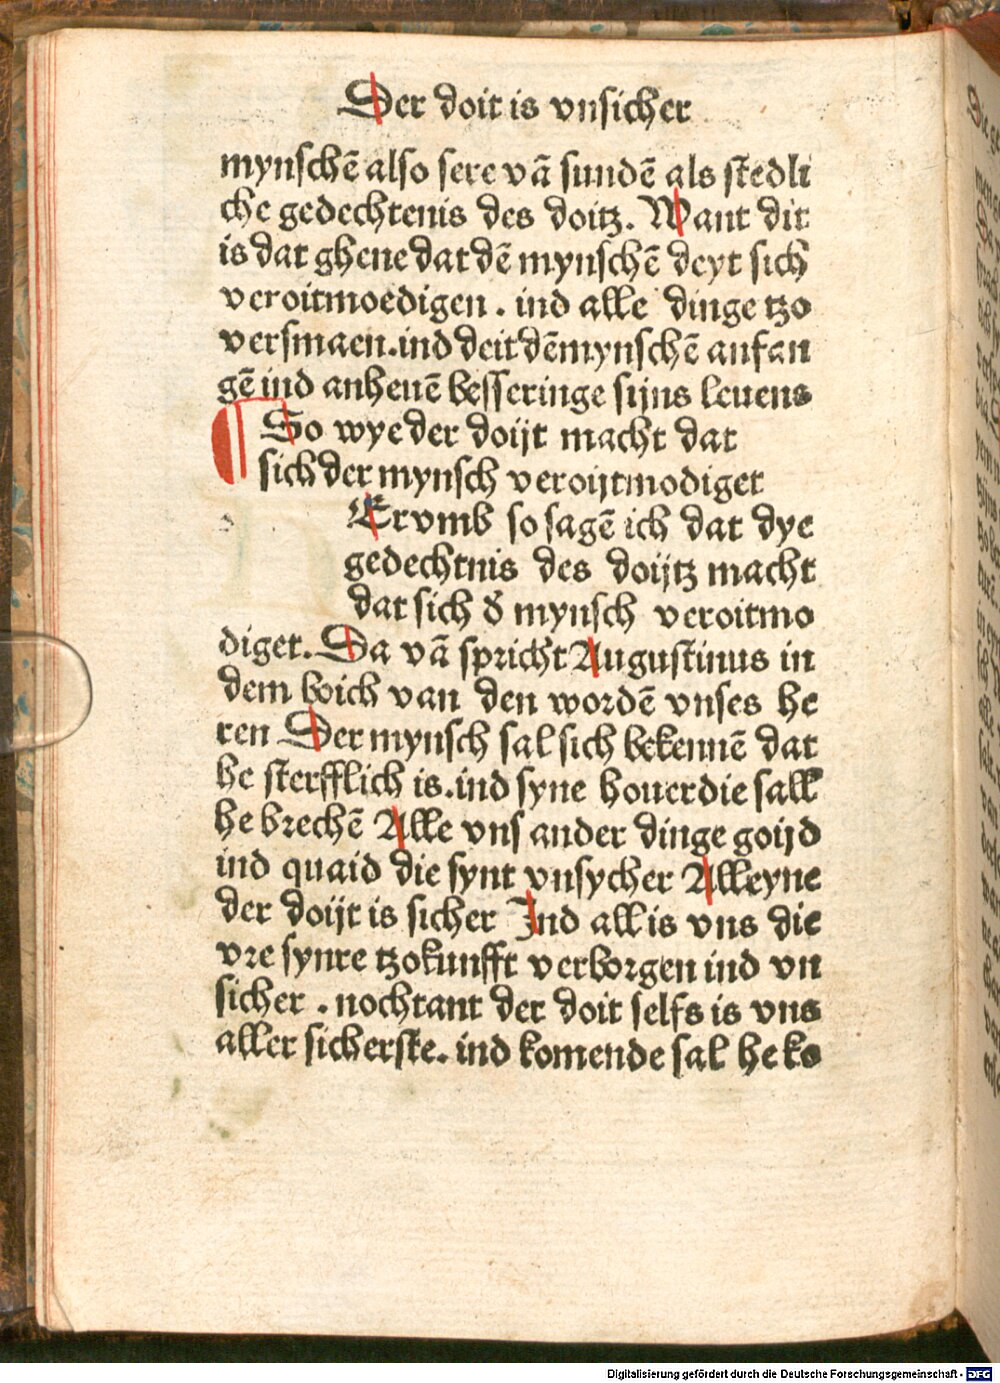 Der doit is vnsicher
mynschē also sere vā sundē als stedli
che gedechtenis des doitz. Want dit
is dat ghene dat dē mynschē deyt sich
veroitmoedigen . ind alle dinge tzo
versmaen.ind deit dē mynschē anfan
gē ind anheuē besseringe sijns leuens
¶ So wye der doijt macht dat
sich der mynsch veroijtmodiget
Ervmb so sagē ich dat dye
gedechtnis des doijtz macht
dat sich đ mynsch veroitmo
diget. Da vā spricht Augustinus in
dem boich van den wordē vnses he
ren Der mynsch sal sich bekennē dat
he sterfflich is.ind syne houerdie sall
he brechē Alle vns ander dinge goijd
ind quaid die synt vnsycher Alleyne
der doijt is sicher Ind all is vns die
vre synre tzokunfft verborgen ind vn
sicher . nochtant der doit selfs is vns
aller sicherste. ind komende sal he ko
Digitalisierung gefördert durch die Deutsche Forschungsgemeinschaft - DFG